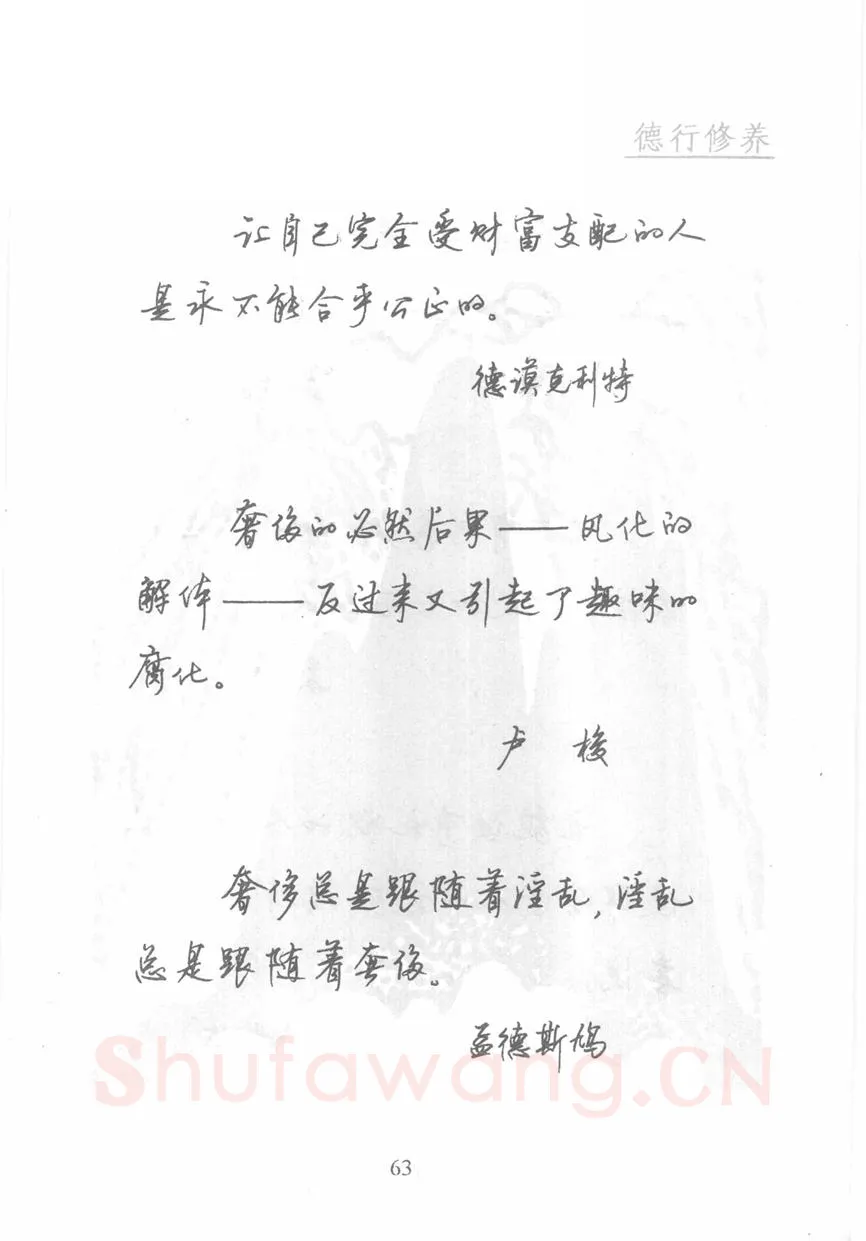 德行修养
让自己完全受财富支配的人
是永不能合乎公正的。
德谟克利特
奢侈的必然后果——风化的
解体——反过来又引起了趣味的
腐化。
卢 梭
奢侈总是跟随着淫乱,淫乱
总是跟随着奢侈。
孟德斯鸠
Shufawang.CN
63